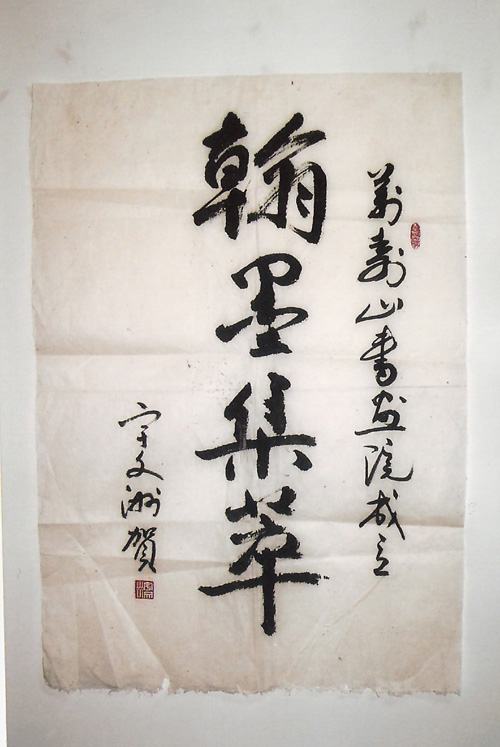 萬壽山書画院成立
翰墨集萃
宇文洲賀